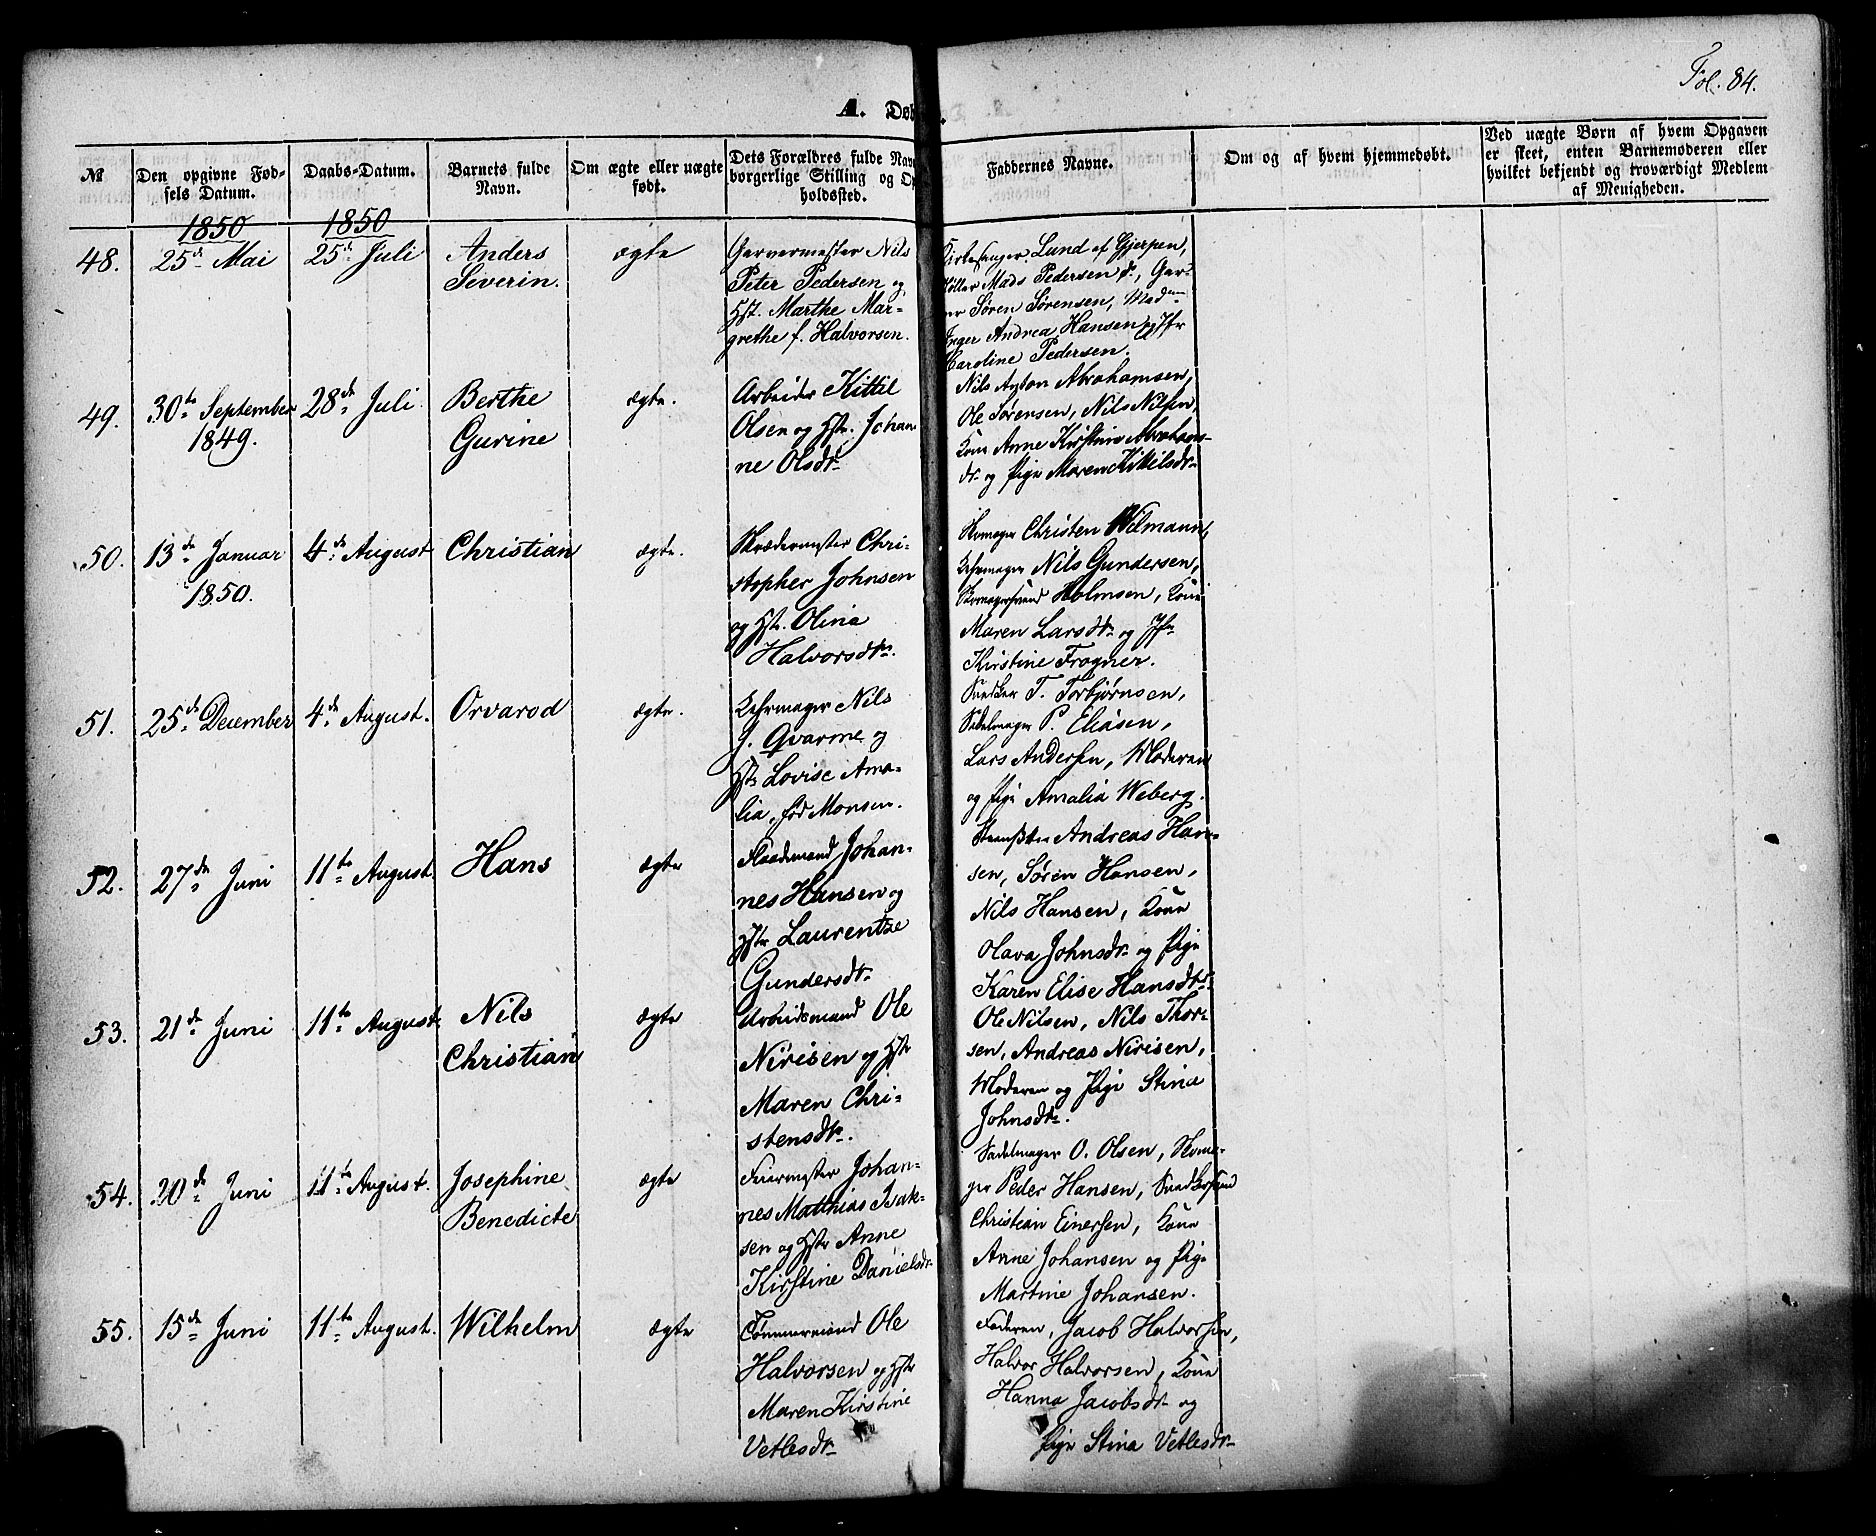 Fol. 84.
A. Døb
№
Den opgivne Fød-
sels Datum.
Daabs-Datum.
Barnets fulde
Navn.
Om ægte eller uægte
født.
Dets Forældres fulde Nav
borgerlige Stilling og Op
holdssted.
Faddernes Navne.
Om og af hvem hjemmedøbt.
Ved uægte Børn af hvem Opgaven
er skeet, enten Barnemoderen eller
hvilket bekjendt og troværdigt Medlem
af Menigheden.
1850
1850
48.
25de Mai
25de Juli
Anders
Severin.
ægte
Garvermester Nils
Peter Pedersen og
Hst. Marthe Mar-
grethe f. Halvorsen.
Kirkesanger Lund af Gjerpen,
Møller Mads Pedersen d., Gar-
ver Søren Sørensen, Mad.
Inger Andrea Hansen og Jfr
Caroline Pedersen.
49.
30te September
1849.
28de Juli
Berthe
Gurine
ægte.
Arbeider Kittil
Olsen og Hstr. Johan
ne Olsdtr
Nils Anton Abrahamsen,
Ole Sørensen, Nils Nilsen,
Kone Anne Kirstine Abrahams-
dtr og Pige Maren Kittilsdtr
50.
13de Januar
1850.
4de August
Christian
ægte.
Skrædermester Chri-
stopher Johnsen
og Hstr. Olina
Halvorsdtr.
Skomager Christen Wilmann,
Nils Gundersen,
Skomagersvend Holmsen, Kone
Maren Larsdtr og Jfr
Kirstine Frogner.
51.
25de December
4de August.
Orvarod
ægte.
Nils
J. Qvarme og
Hstr Lovise Ama-
lia, fød Monsen.
Snedker T. Torbjørnsen,
Sadelmager P. Eliasen,
Lars Andersen, Moderen
og Pige Amalia Weberg.
52.
27de Juni
11te August.
Hans
ægte
Flaademand Johan-
nes Hansen og
Hstr Laurentze
Gundersdtr
Andreas Han-
sen, Søren Hansen,
Nils Hansen, Kone
Olava Johnsdtr og Pige
Karen Elise Hansdtr
53.
21de Juni
11te August.
Nils
Christian
ægte
Arbeidsmand Ole
Nirisen og Hstr
Maren Chri-
stensdtr.
Ole Nilsen, Nils Thor-
sen, Andreas Nirisen,
Moderen og Pige Stina
Johnsdtr.
54.
20de Juni
11te August.
Josephine
Benedicte
ægte
Feiermester Johan-
nes Matthias Isak-
sen og Hstr Anne
Kirstine Danielsdtr
Sadelmager O. Olsen, Skoma-
ger Peder Hansen, Snedkersvend
Christian Einersen, Kone
Anne Johansen og Pige
Martine Johansen.
55.
15de Juni
11te August.
Wilhelm
ægte
Tømmermand Ole
Halvorsen og Hstr
Maren Kirstine
Vetlesdtr
Faderen, Jacob Halvorsen,
Halvor Halvorsen, Kone
Hanna Jacobsdtr og
Pige Stina Vetlesdtr